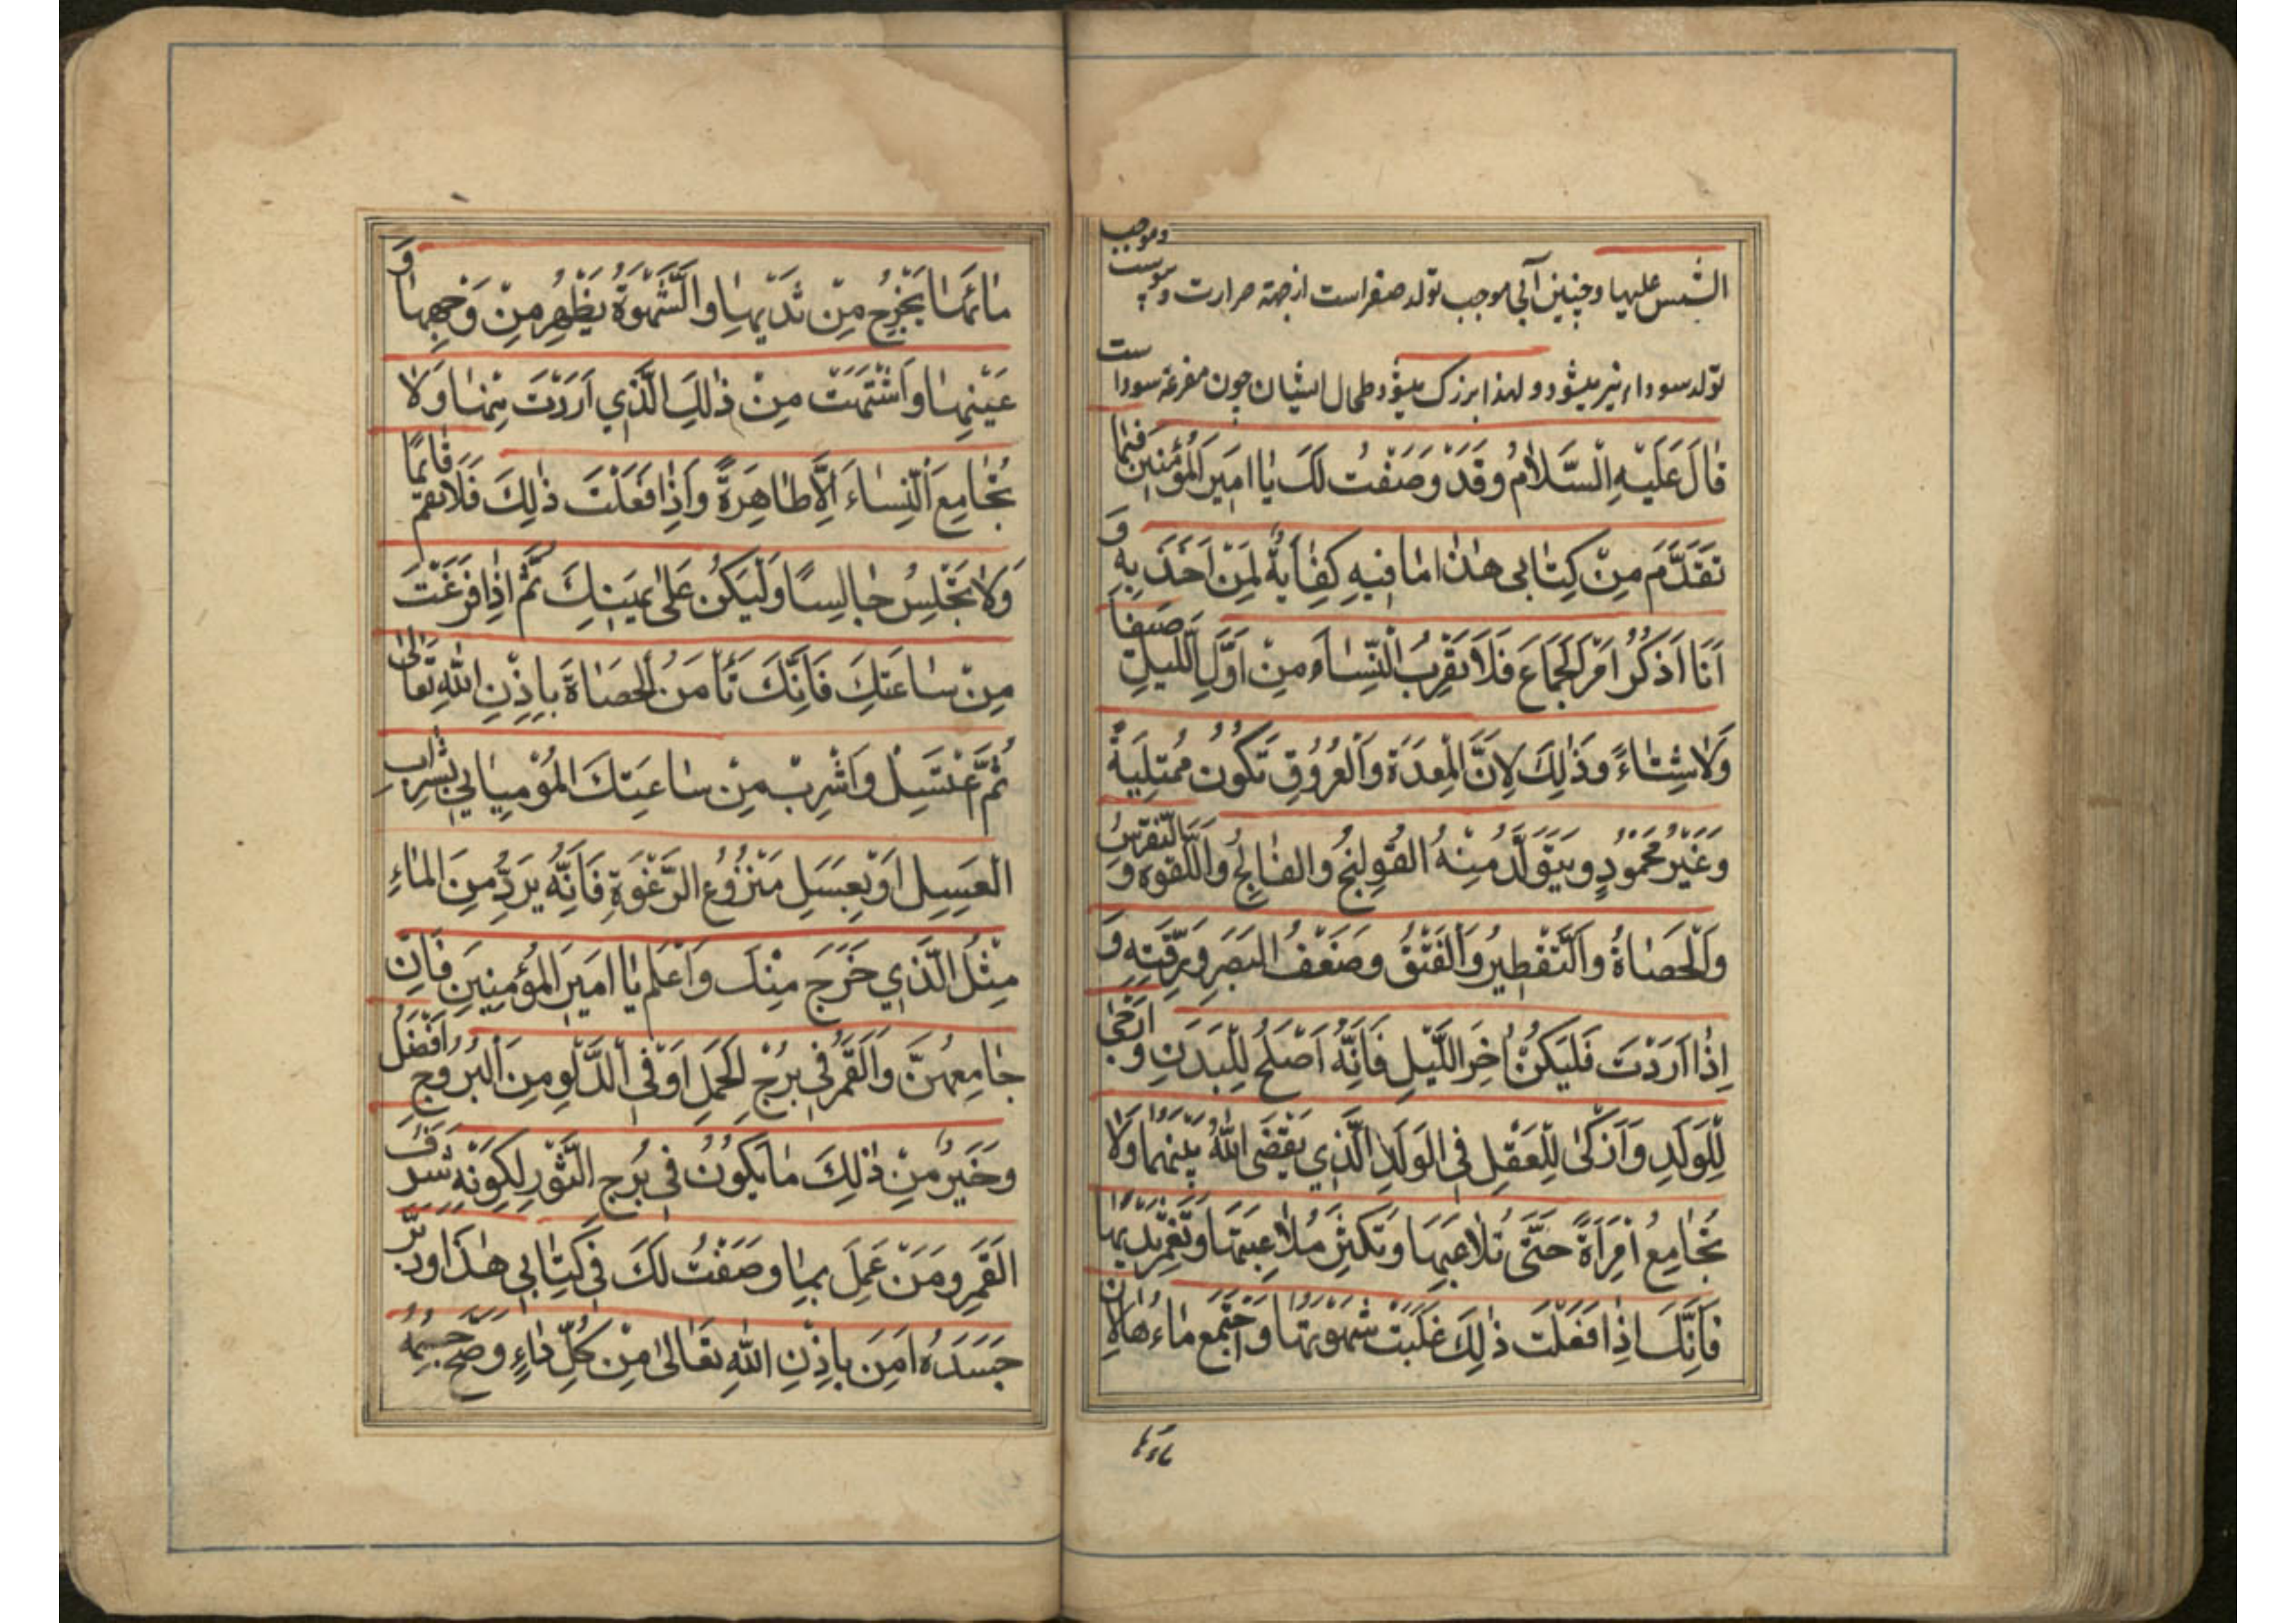 الشمس علیها و چنین آبی موجب تولد صفراست از جهة حرارت و یبوست و موجب
تولد سوداء نیز میشود و لهذا بزرگ میشود طحال ایشان چون مفرغه سوداست
قٰالَ عَلَيْهِ السَّلٰامُ وَقَدْ وَصَفْتُ لَكَ يٰا اَمِيرَ الْمُؤْمِنِينَ فِيمٰا
تَقَدَّمَ مِنْ كِتٰابِى هٰذٰا مٰا فِيهِ كِفٰايَةٌ لِمَنْ اَخَذَ بِهِ وَ
اَنَا اَذْكُرُ اَمْرَ الْجِمَاعِ فَلَا تَقْرَبِ النِّسٰاءَ مِنْ اَوَّلِ اللَّيْلِ صَيْفاً
وَلٰا شِتٰاءً وَذٰلِكَ لِاَنَّ الْمِعْدَةَ وَالْعُرُوقَ تَكُونُ مُمْتَلِيَةً
وَغَيْرُ مَحْمُودٍ وَيَتَوَلَّدُ مِنْهُ الْقُولِنْجُ وَالْفٰالِجُ وَاللَّقْوَه وَ النِّقْرِسُ
وَالْحَصٰاةُ وَالتَّقْطِيرُ وَالْفَتْقُ وَضَعْفُ الْبَصَرِ وَرِقَّتِهِ وَ
اِذٰا اَرَدْتَ فَلْيَكُنْ اٰخِرَ اللَّيْلِ فَاِنَّهُ اَصْلَحُ لِلْبَدَنِ وَ اَرْجٰى
لِلْوَلَدِ وَاَزْكٰى لِلْعَقْلِ فِى الْوَلَدِ الَّذِي يَقْضَى اللّٰهُ بَيْنَهُمٰا وَلٰا
تُجٰامِعُ امْرَأَةً حَتّٰى تُلٰاعِبَهٰا وَتَكْثِرَ مُلٰاعِبَتَهٰا وَتَغْمِزَ ثَدْيَيْهٰا
فَاِنَّكَ اِذٰا فَعَلْتَ ذٰلِكَ غَلَبَتْ شَهْوَتُهٰا وَاجْتَمَعَ مٰاءُهٰا لِاَنَّ
ماءها
مٰائَهٰا يَخْرُجُ مِنْ ثَدْيَيْهٰا وَالشَّهْوَةُ يَظْهَرُ مِنْ وَجْهِهٰا وَ
عَيْنَيْهٰا وَاشْتَهَتْ مِنْ ذٰلِكَ الَّذِي اَرَدْتَ مِنْهٰا وَلٰا
تُجٰامِعِ النِّسٰاءَ اِلَّا طٰاهِرَةً وَاِذٰا فَعَلْتَ ذٰلِكَ فَلَا تَقُمْ قٰائِمًا
وَلٰا تَجْلِسْ جٰالِسًا وَلْيَكُنْ عَلٰى يَمِينِكَ ثُمَّ اِذٰا فَرَغْتَ
مِنْ سٰاعَتِكَ فَاِنَّكَ تَأْمَنُ الْحَصٰاةَ بِاِذْنِ اللّٰهِ تَعٰالٰى
ثُمَّ غْتَسِلْ وَاشْرِبْ مِنْ سٰاعَتِكَ الْمُوْمِيٰايِي بِشَرابِ
الْعَسَلِ اَوْ بِعَسَلِ مَنْزُوْعِ الرَّغْوَةِ فَاِنَّهُ يَرُدُّ مِنَ الْمٰاءِ
مِثْلَ الَّذِي خَرَجَ مِنْكَ وَاعْلَمْ يٰا اَمِيرَ الْمُؤْمِنِينَ فَاِنَّ
جٰامِعِهُنَّ وَالْقَمَرُ فِى بُرْجِ الْحَمَلِ اَوْ فِى الدَّلْوِ مِنَ الْبُرُوجِ اَفْضَلُ
وَخَيْرٌ مِنْ ذٰلِكَ مٰا يَكُونُ فِى بُرْجِ الثَّوْرِ لِكَوْنِهِ شَرَفَ
الْقَمَرِ وَمَنْ عَمِلَ بِمٰا وَصَفْتُ لَكَ فِى كِتٰابِى هٰذٰا وَدَبَّرَ
جَسَدَهُ اَمِنَ بِاِذْنِ اللّٰهِ تَعٰالٰى مِنْ كُلِّ دٰاءٍ وَصَحَّ جِسْمُهُ